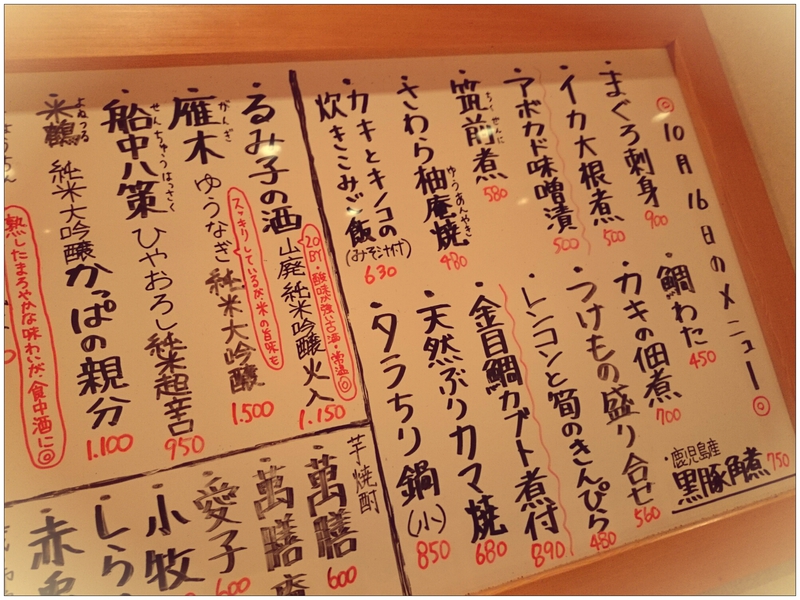 ◎10月16日のメニュー◎
・まぐろ刺身 900
・イカ大根煮 500
・アボカド味噌漬 500
・筑前煮 580
ちくぜんに
・さわら柚庵焼 480
ゆうあんやき
・カキとキノコの
炊きこみご飯(みそ汁付) 630
・鯛わた 450
・カキの佃煮 700
・つけもの盛り合せ 560
・レンコンと筍のきんぴら 480
・金目鯛カブト煮付 890
・天然ぶりカマ焼 680
・タラちり鍋(小) 850
・鹿児島産
黒豚角煮 750
・るみ子の酒 山廃 純米吟醸 火入 1.150
20BY・酸味が強い古酒・常温◎
・雁木 ゆうなぎ 純米大吟醸 1.500
がんぎ
スッキリしているが米の旨味も
・船中八策 ひやおろし 純米超辛口 950
せんちゅうはっさく
・米鶴 純米大吟醸 かっぱの親分 1.100
よねつる
熟したまろやかな味わいが食中酒に◎
芋焼酎
・萬膳 600
・萬膳庵
・愛子 600
・小牧
・しら
・赤兎